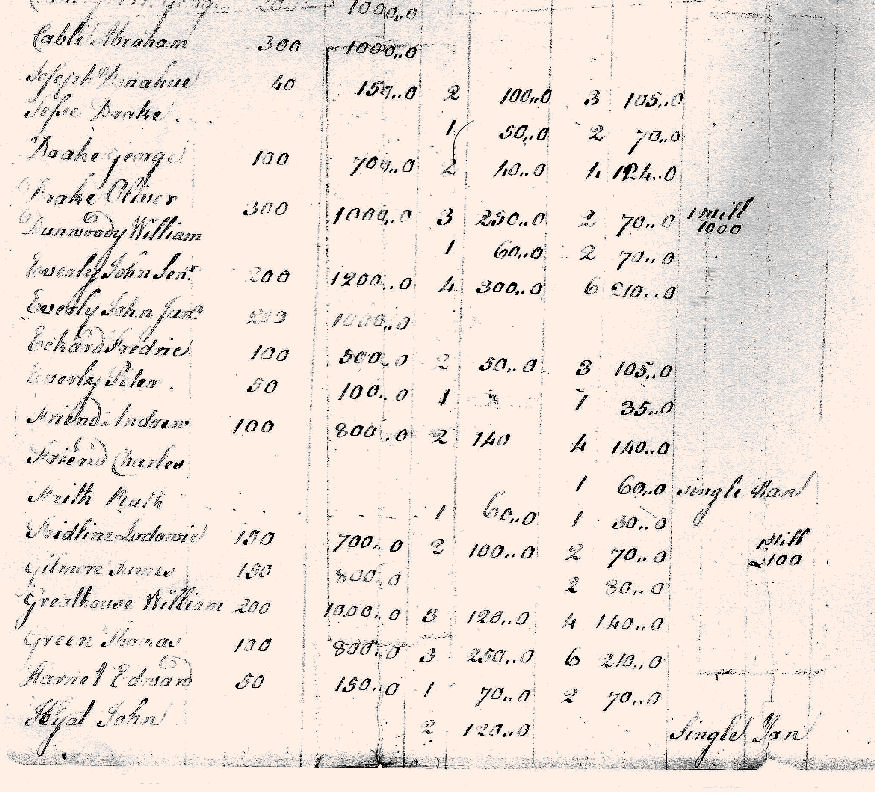 1000..0
Cable Abraham 300 1000..0
Joseph Donahue 40 150..0 2 100..0 3 105..0
Jesse Drake 1 50..0 2 70..0
Drake George 100 700..0 2 40..0 4 124..0
Drake Oliver 300 1000..0 3 250..0 2 70..0 1 mill 1000
Dunwoody William 1 60..0 2 70..0
Everly John Senr 200 1200..0 4 300..0 6 210..0
Everly John Junr 1000..0
Eckard Fredric 100 500..0 2 50..0 3 105..0
Everly Peter 50 100..0 1 1 35..0
Friend Andrew 100 800..0 2 140 4 140..0
Friend Charles 1 60..0 single Man
Frith Ruth 1 60..0 1 30..0
Fridline Ludowic 150 700..0 2 100..0 2 70..0 Mill £100
Gilmore James 150 800..0 2 80..0
Greathouse William 200 1000..0 3 120..0 4 140..0
Green Thomas 100 800..0 3 250..0 6 210..0
Harriet Edward 50 150..0 1 70..0 2 70..0
Hyat John 2 120..0 Single Man